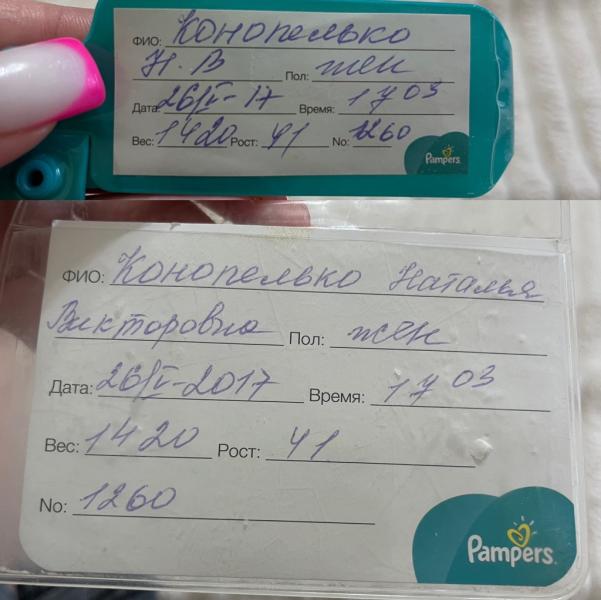 ФИО: Конопелько
Н. В Пол: жен
Дата: 26/V-17 Время: 17 03
Вес: 1420 Рост: 41 No: 1260
Pampers
ФИО: Конопелько Наталья
Викторовна Пол: жен
Дата: 26/V-2017 Время: 17 03
Вес: 1420 Рост: 41
No: 1260
Pampers